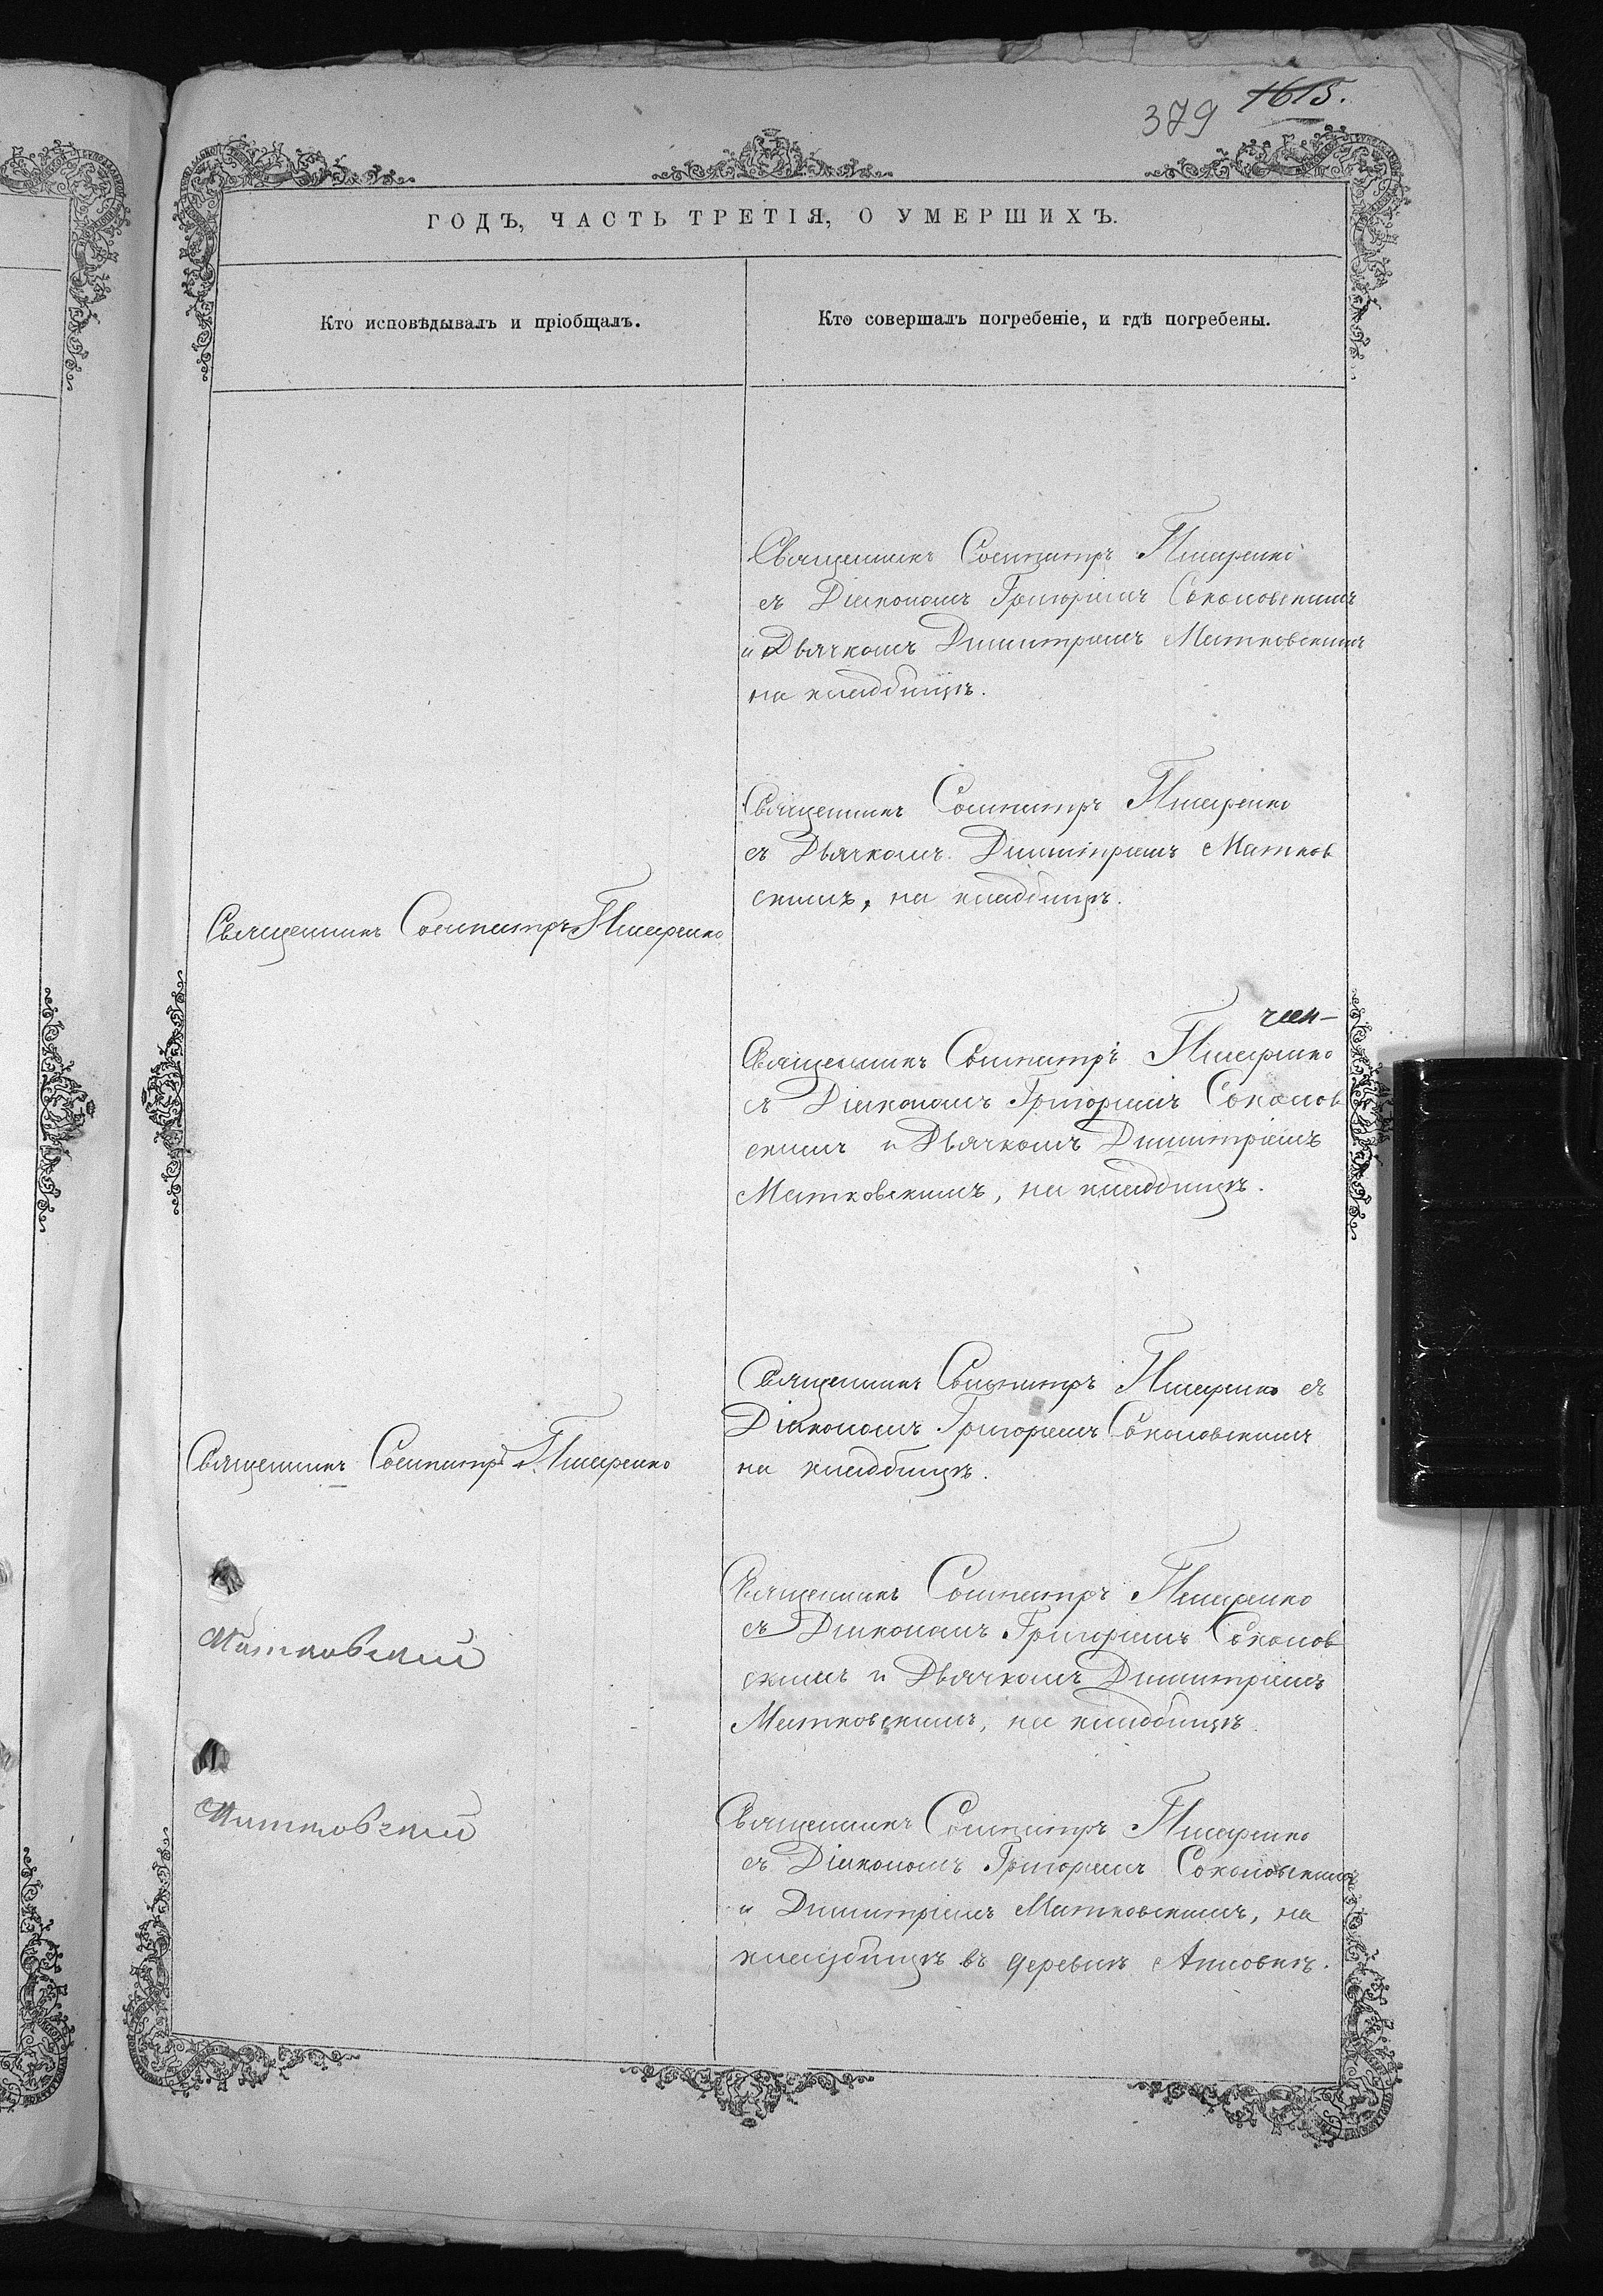 379 1615.
ГОДЪ, ЧАСТЬ ТРЕТІЯ, О УМЕРШИХЪ.
Кто исповѣдывалъ и пріобщалъ.
Кто совершалъ погребеніе, и гдѣ погребены.
Священникъ Сосипатръ Писаренко
съ Діакономъ Григоріемъ Соколовскимъ
и Дьячкомъ Димитріемъ Матковскимъ
на кладбищѣ.
Священникъ Сосипатръ Писаренко
съ Дьячкомъ Димитріемъ Матков
скимъ, на кладбищѣ.
Священникъ Сосипатръ Писаренко
Священникъ Сосипатръ Писаренко
съ Діакономъ Григоріемъ Соколов
скимъ и Дьячкомъ Димитріемъ
Матковскимъ, на кладбищѣ.
Священникъ Сосипатръ Писаренко съ
Діакономъ Григоріемъ Соколовскимъ
на кладбищѣ.
Священникъ Сосипатръ Писаренко
Священникъ Сосипатръ Писаренко
съ Діакономъ Григоріемъ Соколов
скимъ и Дьячкомъ Димитріемъ
Матковскимъ, на кладбищѣ.
Матковскій
Матковскій
Священникъ Сосипатръ Писаренко
съ Діакономъ Григоріемъ Соколовскимъ
и Димитріемъ Матковскимъ, на
кладбищѣ въ деревнѣ